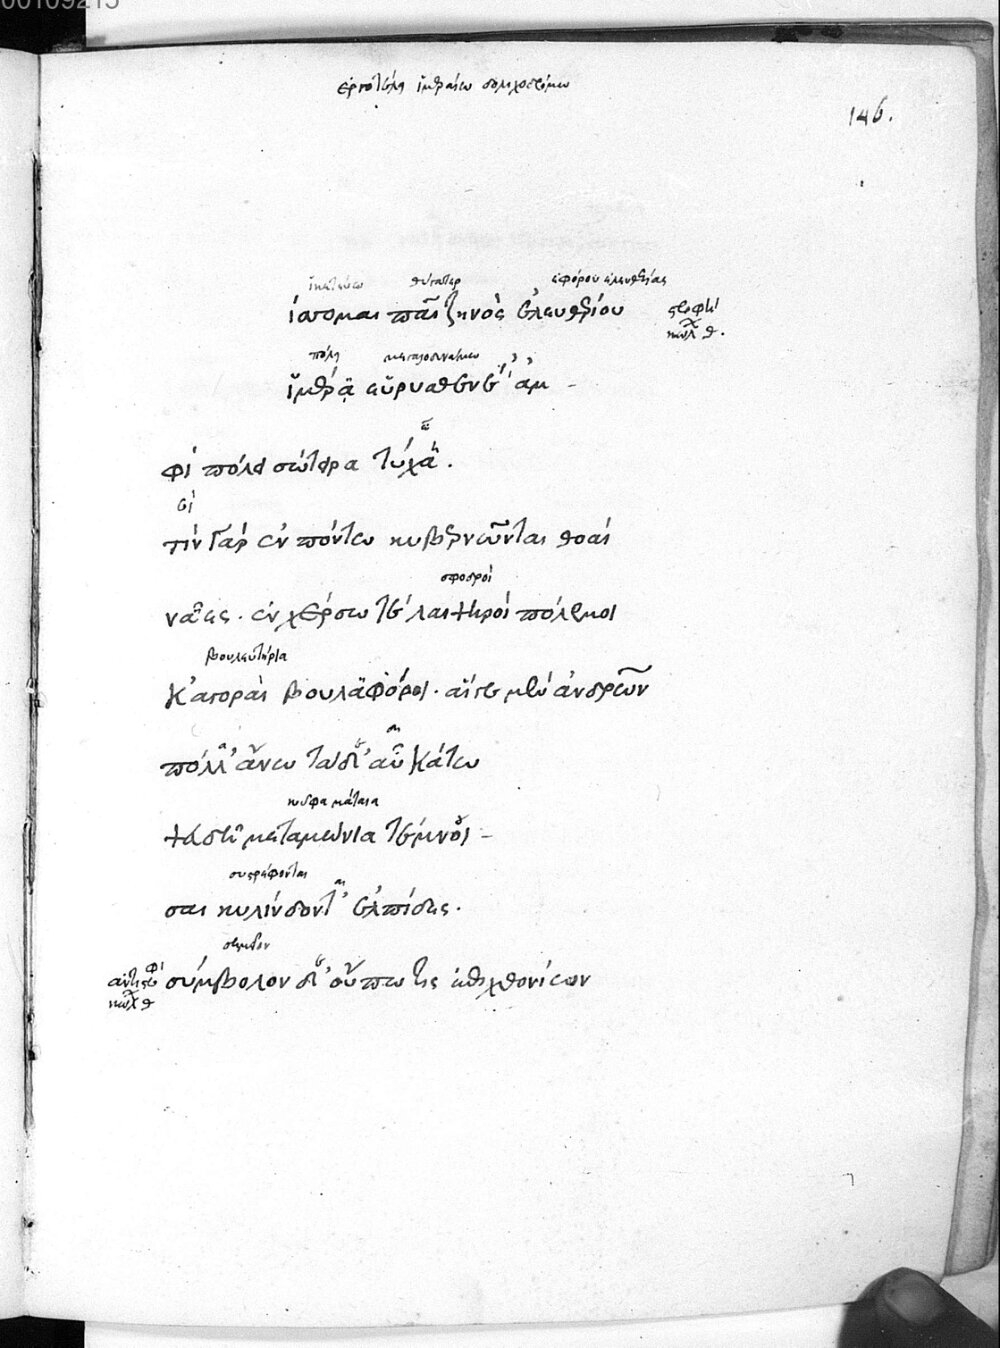 00109215
ἐργοτέλη ἱμεραίω δολιχοδρόμω
146.
ἱκετεύω θύγατερ ἐφόρου ἐλευθερίας
λίσσομαι παῖ ζηνὸς ἐλευθερίου στροφὴ
κώλ θ.
πόλιν μεγαλοδυναμον
ἱμέρα εὐρυσθενέ' ἀμ -
φὶ πόλει σώτειρα τύχα.
σὶ
τὶν γὰρ ἐν πόντω κυβερνῶνται θοαὶ
σφοδροὶ
νᾶες. ἐν χέρσω τε λαιψηροὶ πόλεμοι
βουλευτήρια
κἀγοραὶ βουλαφόροι. αἵ γε μὲν ἀνδρῶν
πόλλ' ἄνω τὰ δ' αὖ κάτω
κοῦφα μάταια
ψεύδη μεταμώνια τέμνοι -
συστρέφονται
σαι κυλίνδοντ' ἐλπίδες.
σημεῖον
ἀντιστροφὴ σύμβολον δ' οὔπω τις ἐπιχθονίων
κώλ θ